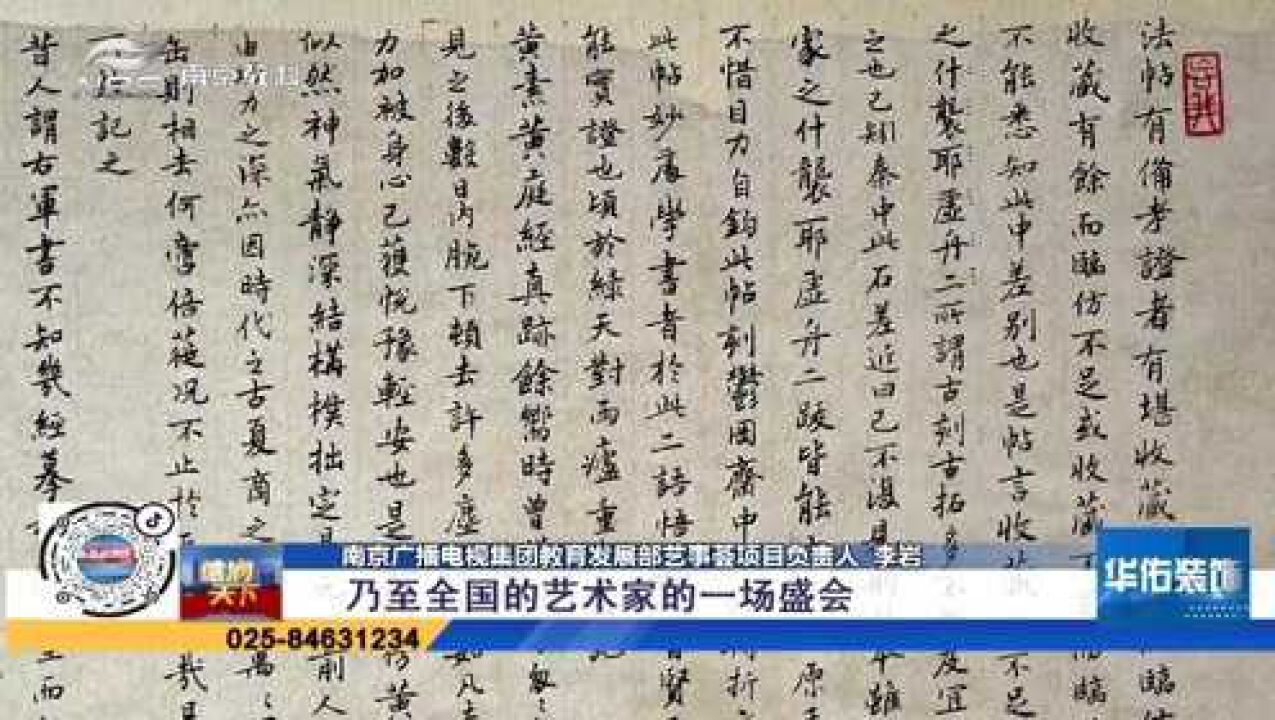 法帖有備考證者有堪收藏
收藏有餘而臨仿不足或收藏
不能悉知此中差别也是帖言收藏
之什襲耶虛舟二所謂古刻古拓多
之也已知秦中此石差近曰己不復
家之什襲耶虛舟二跋皆能
不惜目力自鈎此帖刻鬱岡齋中
此帖妙處學書者於此二語悟
能實證也頃於綠天對雨瀘重
黄素黄庭經真跡餘嚮時曾
見之後數日内腕下頓去許多塵
力加被身心已獲悦豫輕安也是
似然神氣静深結構樸拙定
功力之深亦因時代之古夏商之
缶則相去何啻倍蓰况不止於
記之
昔人謂右軍書不知幾經摹
南京广播电视集团教育发展部艺事荟项目负责人 李岩
乃至全国的艺术家的一场盛会
天下
025-84631234
华佑装饰